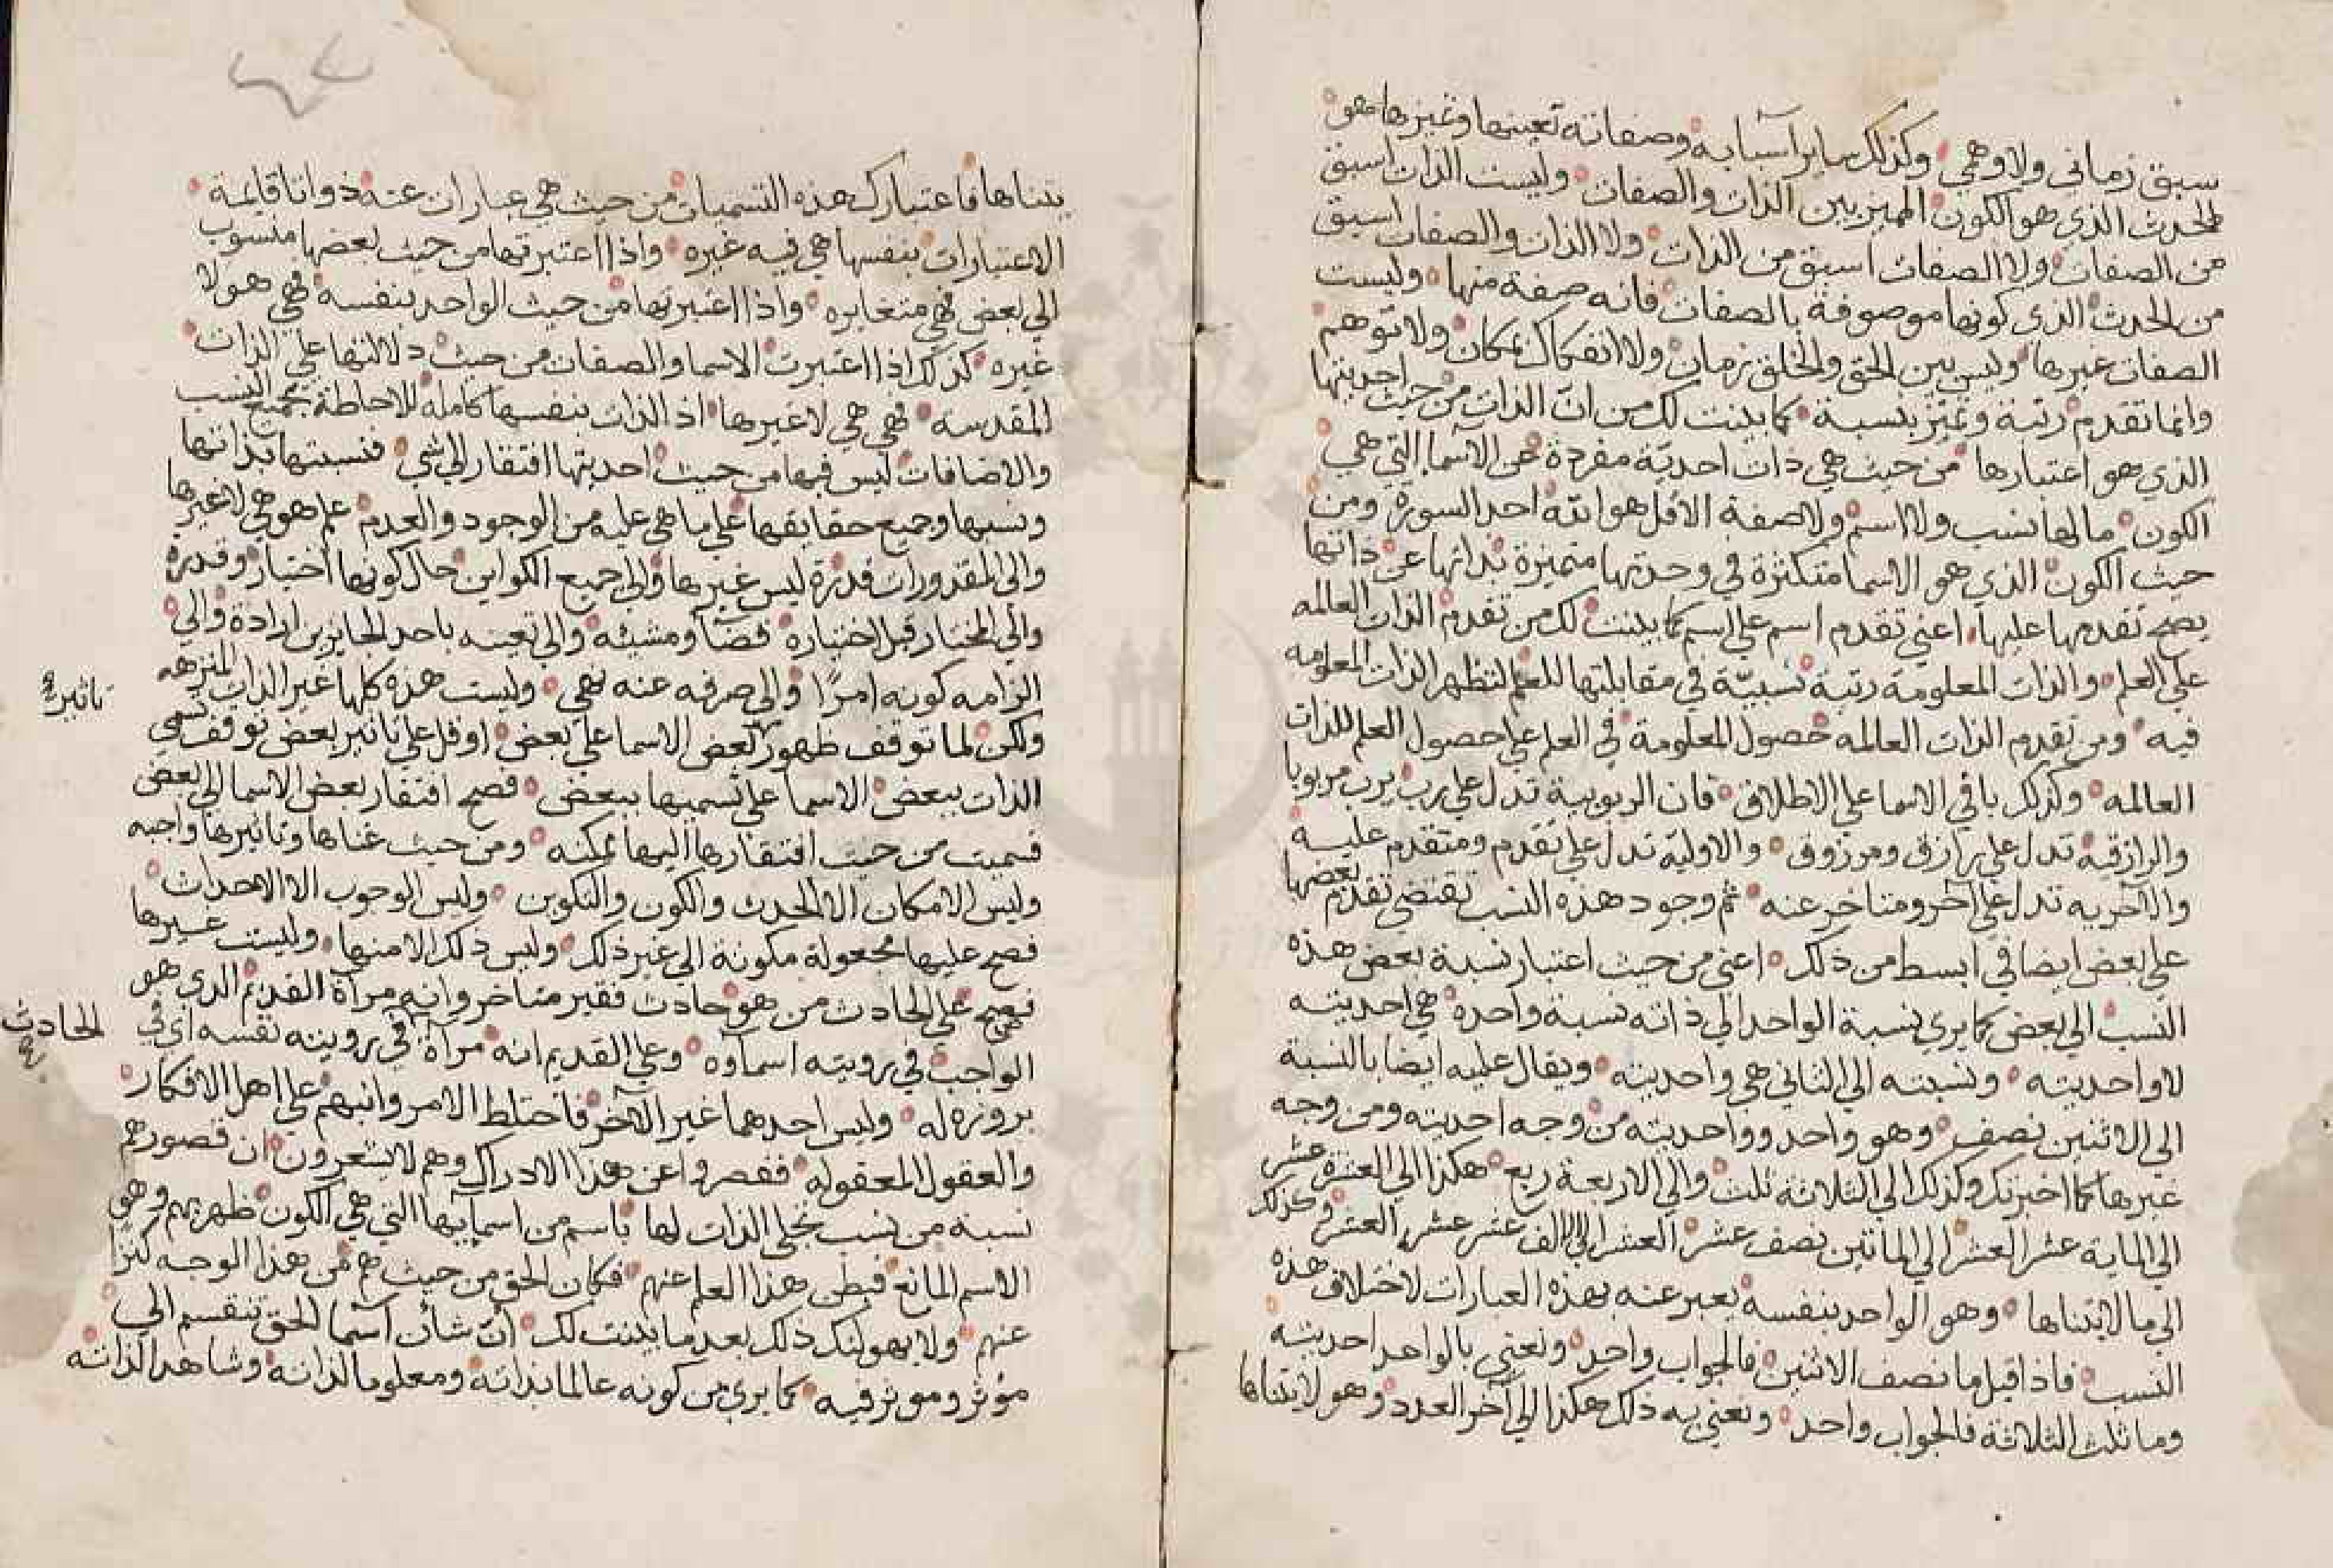 سبق زماني ولا وهمي وكذلك ساير اسبابه وصفاته تعينها وغيرها هو
الحدث الذي هو الكون المميز بين الذات والصفات وليست الذات اسبق
من الصفات ولا الصفات اسبق من الذات ولا الذات والصفات اسبق
من الحدث الذي كونها موصوفة بالصفات فانه صفة منها وليست
الصفات غيرها وليس بين الحق والخلق زمان ولا انفكاك بمكان ولا توهم
وانما تقدم رتبة وتميز بنسبة كما بينت لك من ان الذات من حيث احديتها
الذي هو اعتبارها من حيث هي ذات احدية مفردة عن الاسما التي هي
الكون ما لها نسب ولا اسم ولا صفة الا قل هو الله احد السورة ومن
حيث الكون الذي هو الاسما متكثرة في وحدتها متميزة بذاتها عن ذاتها
يصح تقدمها عليها اعني تقدم اسم على اسم كما بينت لك من تقدم الذات العالمه
على العلم والذات المعلومة رتبة نسبية في مقابلتها للعلم لتظهر الذات المعلومه
فيه ومن تقدم الذات العالمه حصول المعلومة في العلم على حصول العلم للذات
العالمه وكذلك باقي الاسما على الاطلاق فان الربوبية تدل على رب يرب مربوبا
والرازقية تدل على رازق ومرزوق والاولية تدل على تقدم ومتقدم عليه
والآخريه تدل على آخر ومتاخر عنه ثم وجود هذه النسب تقتضي تقدم بعضها
على بعض ايضا في ابسط من ذلك اعني من حيث اعتبار نسبة بعض هذه
النسب الى بعض كما يرى نسبة الواحد الى ذاته نسبة واحدة هي احديته
لا واحديته ونسبته الى الثاني هي واحديته ويقال عليه ايضا بالنسبة
الى الاثنين نصف وهو واحد وواحديته من وجه احديته ومن وجه
غيرها كما اخبرتك وكذلك الى الثلاثة ثلث والى الاربعة ربع هكذا الى العشرة عشر
الى الماية عشر العشر الى الماتين نصف عشر العشر الى الالف عشر عشر العشر وكذلك
الى ما لا يتناها وهو الواحد بنفسه يعبر عنه بهذه العبارات لاختلاف هذه
النسب فاذا قيل ما نصف الاثنين فالجواب واحد ونعني بالواحد احديته
وما ثلث الثلاثة فالجواب واحد ونعني به ذلك هكذا الى آخر العدد وهو لا يتناها
يتناها فاعتبارك هذه التسميات من حيث هي عبارات عنه ذواتا قايمة
الاعتبارات بنفسها هي فيه غيره واذا اعتبرتها من حيث بعضها منسوب
الى بعض فهي متغايره واذا اعتبرتها من حيث الواحد بنفسه فهي هو لا
غيره كذلك اذا اعتبرت الاسما والصفات من حيث دلالتها على الذات
المقدسه فهي هي لا غيرها اذ الذات بنفسها كاملة للاحاطة بجميع النسب
والاضافات ليس فيها من حيث احديتها افتقار الى شي فنسبتها بذاتها
ونسبها وجميع حقايقها على ما هي عليه من الوجود والعدم علم هو هي لا غيرها
والى المقدورات قدرة ليس غيرها والى جميع الكواين حال كونها اختيار وقدرة
والى المختار قبل اختياره قضا ومشيئه والى تعينه باحد الجايزين ارادة والى
الزامه كونه امرا والى صرفه عنه نهي وليست هذه كلها غير الذات المنزهه
ولكن لما توقف ظهور بعض الاسما على بعض او قل على تاثير بعض توقف تسمي
تاثير
الذات ببعض الاسما على تسميها ببعض فصح افتقار بعض الاسما الى بعض
فسميت من حيث افتقارها اليها ممكنه ومن حيث غناها وتاثيرها واجبه
وليس الامكان الا الحدث والكون والتكوين وليس الوجوب الا الاحداث
فصح عليها مجعولة مكونة الى غير ذلك وليس ذلك الا منها وليست غيرها
فصح على الحادث من هو حادث فقير متاخر وانه مرآة القديم الذي هو
الواجب في رويته اسماوه وعلى القديم انه مرآة في رويته نفسه اي في
الحادث
بروزه له وليس احدهما غير الآخر فاختلط الامر وانبهم على اهل الافكار
والعقول المعقوله فقصروا عن هذا الادراك وهم لا يشعرون ان قصورهم
نسبة من نسب تجلي الذات لها باسم من اسمايها التي هي الكون ظهر بهم وهو
الاسم المانع فبطن هذا العلم عنهم فكان الحق من حيث هم من هذا الوجه كنزا
عنهم ولا يهولنك ذلك بعد ما بينت لك ان شان اسما الحق تنقسم الى
مؤثر وموثر فيه كما يرى من كونه عالما بذاته ومعلوما لذاته وشاهدا لذاته